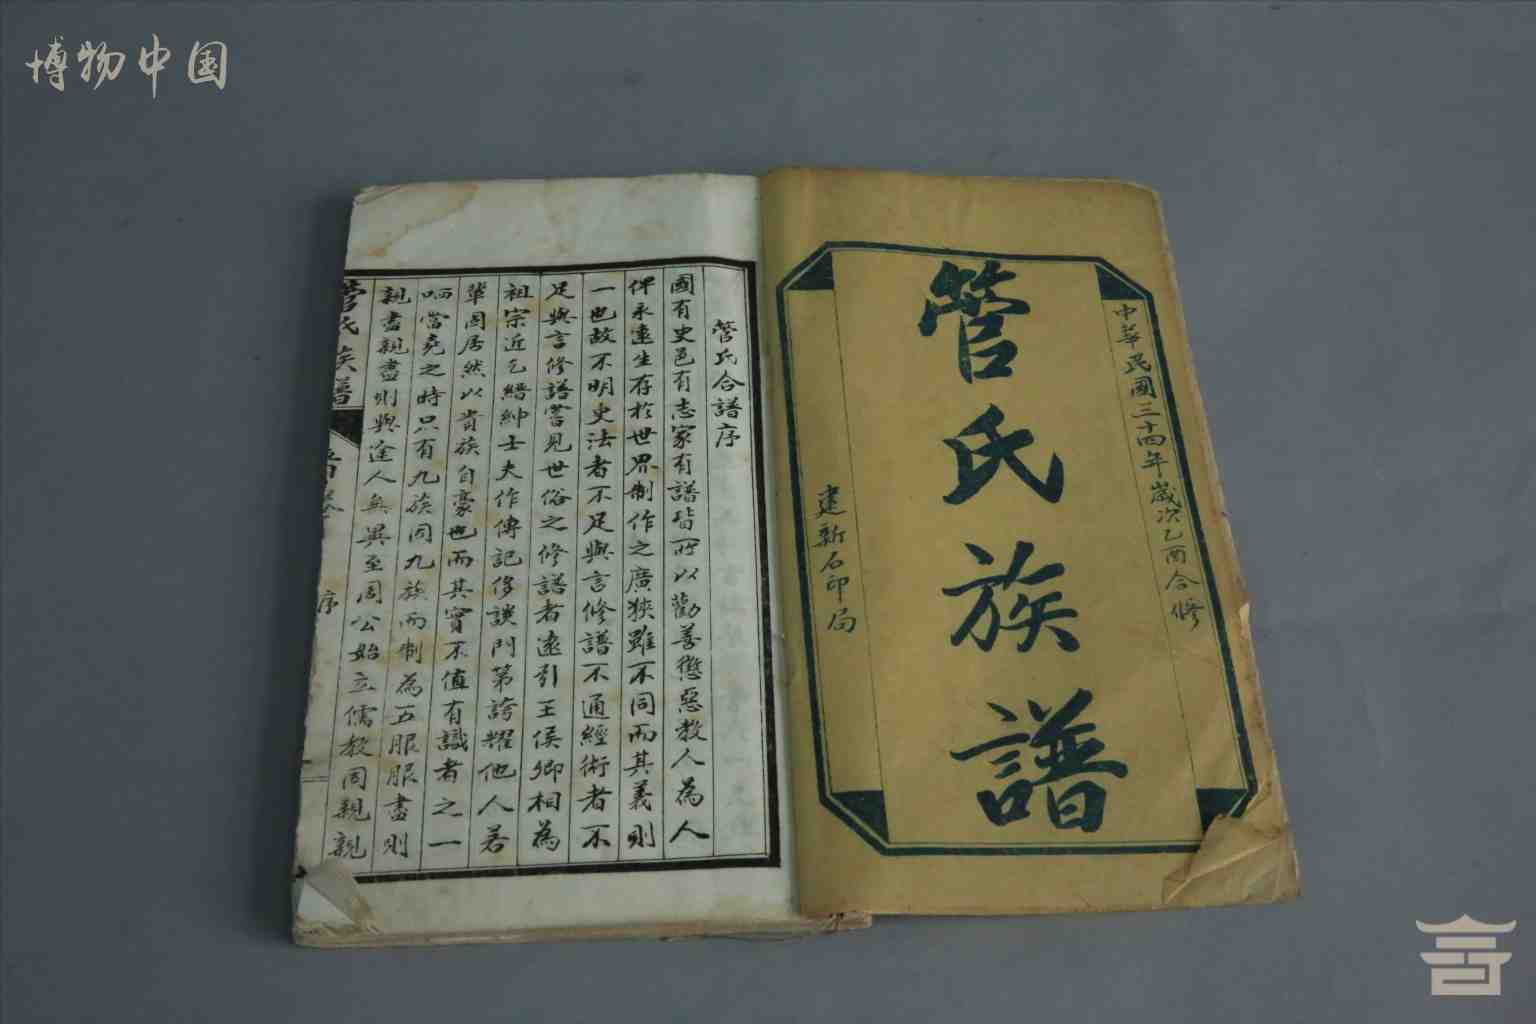 博物中国
中華民國三十四年歲次乙酉合修
管氏族譜
建新石印局
管氏合譜序
國有史邑有志家有譜皆所以勸善懲惡教人為人
俾永遠生存於世界制作之廣狹雖不同而其義則
一也故不明史法者不足與言修譜不通經術者不
足與言修譜嘗見世俗之修譜者遠引王侯卿相為
祖宗近乞縉紳士夫作傳記侈談門第誇耀他人若
輩固居然以貴族自豪也而其實不值有識者之一
哂當堯之時只有九族同九族而制為五服服盡則
親盡親盡則與途人無異至周公始立儒教同親親
管氏族譜
首卷
序